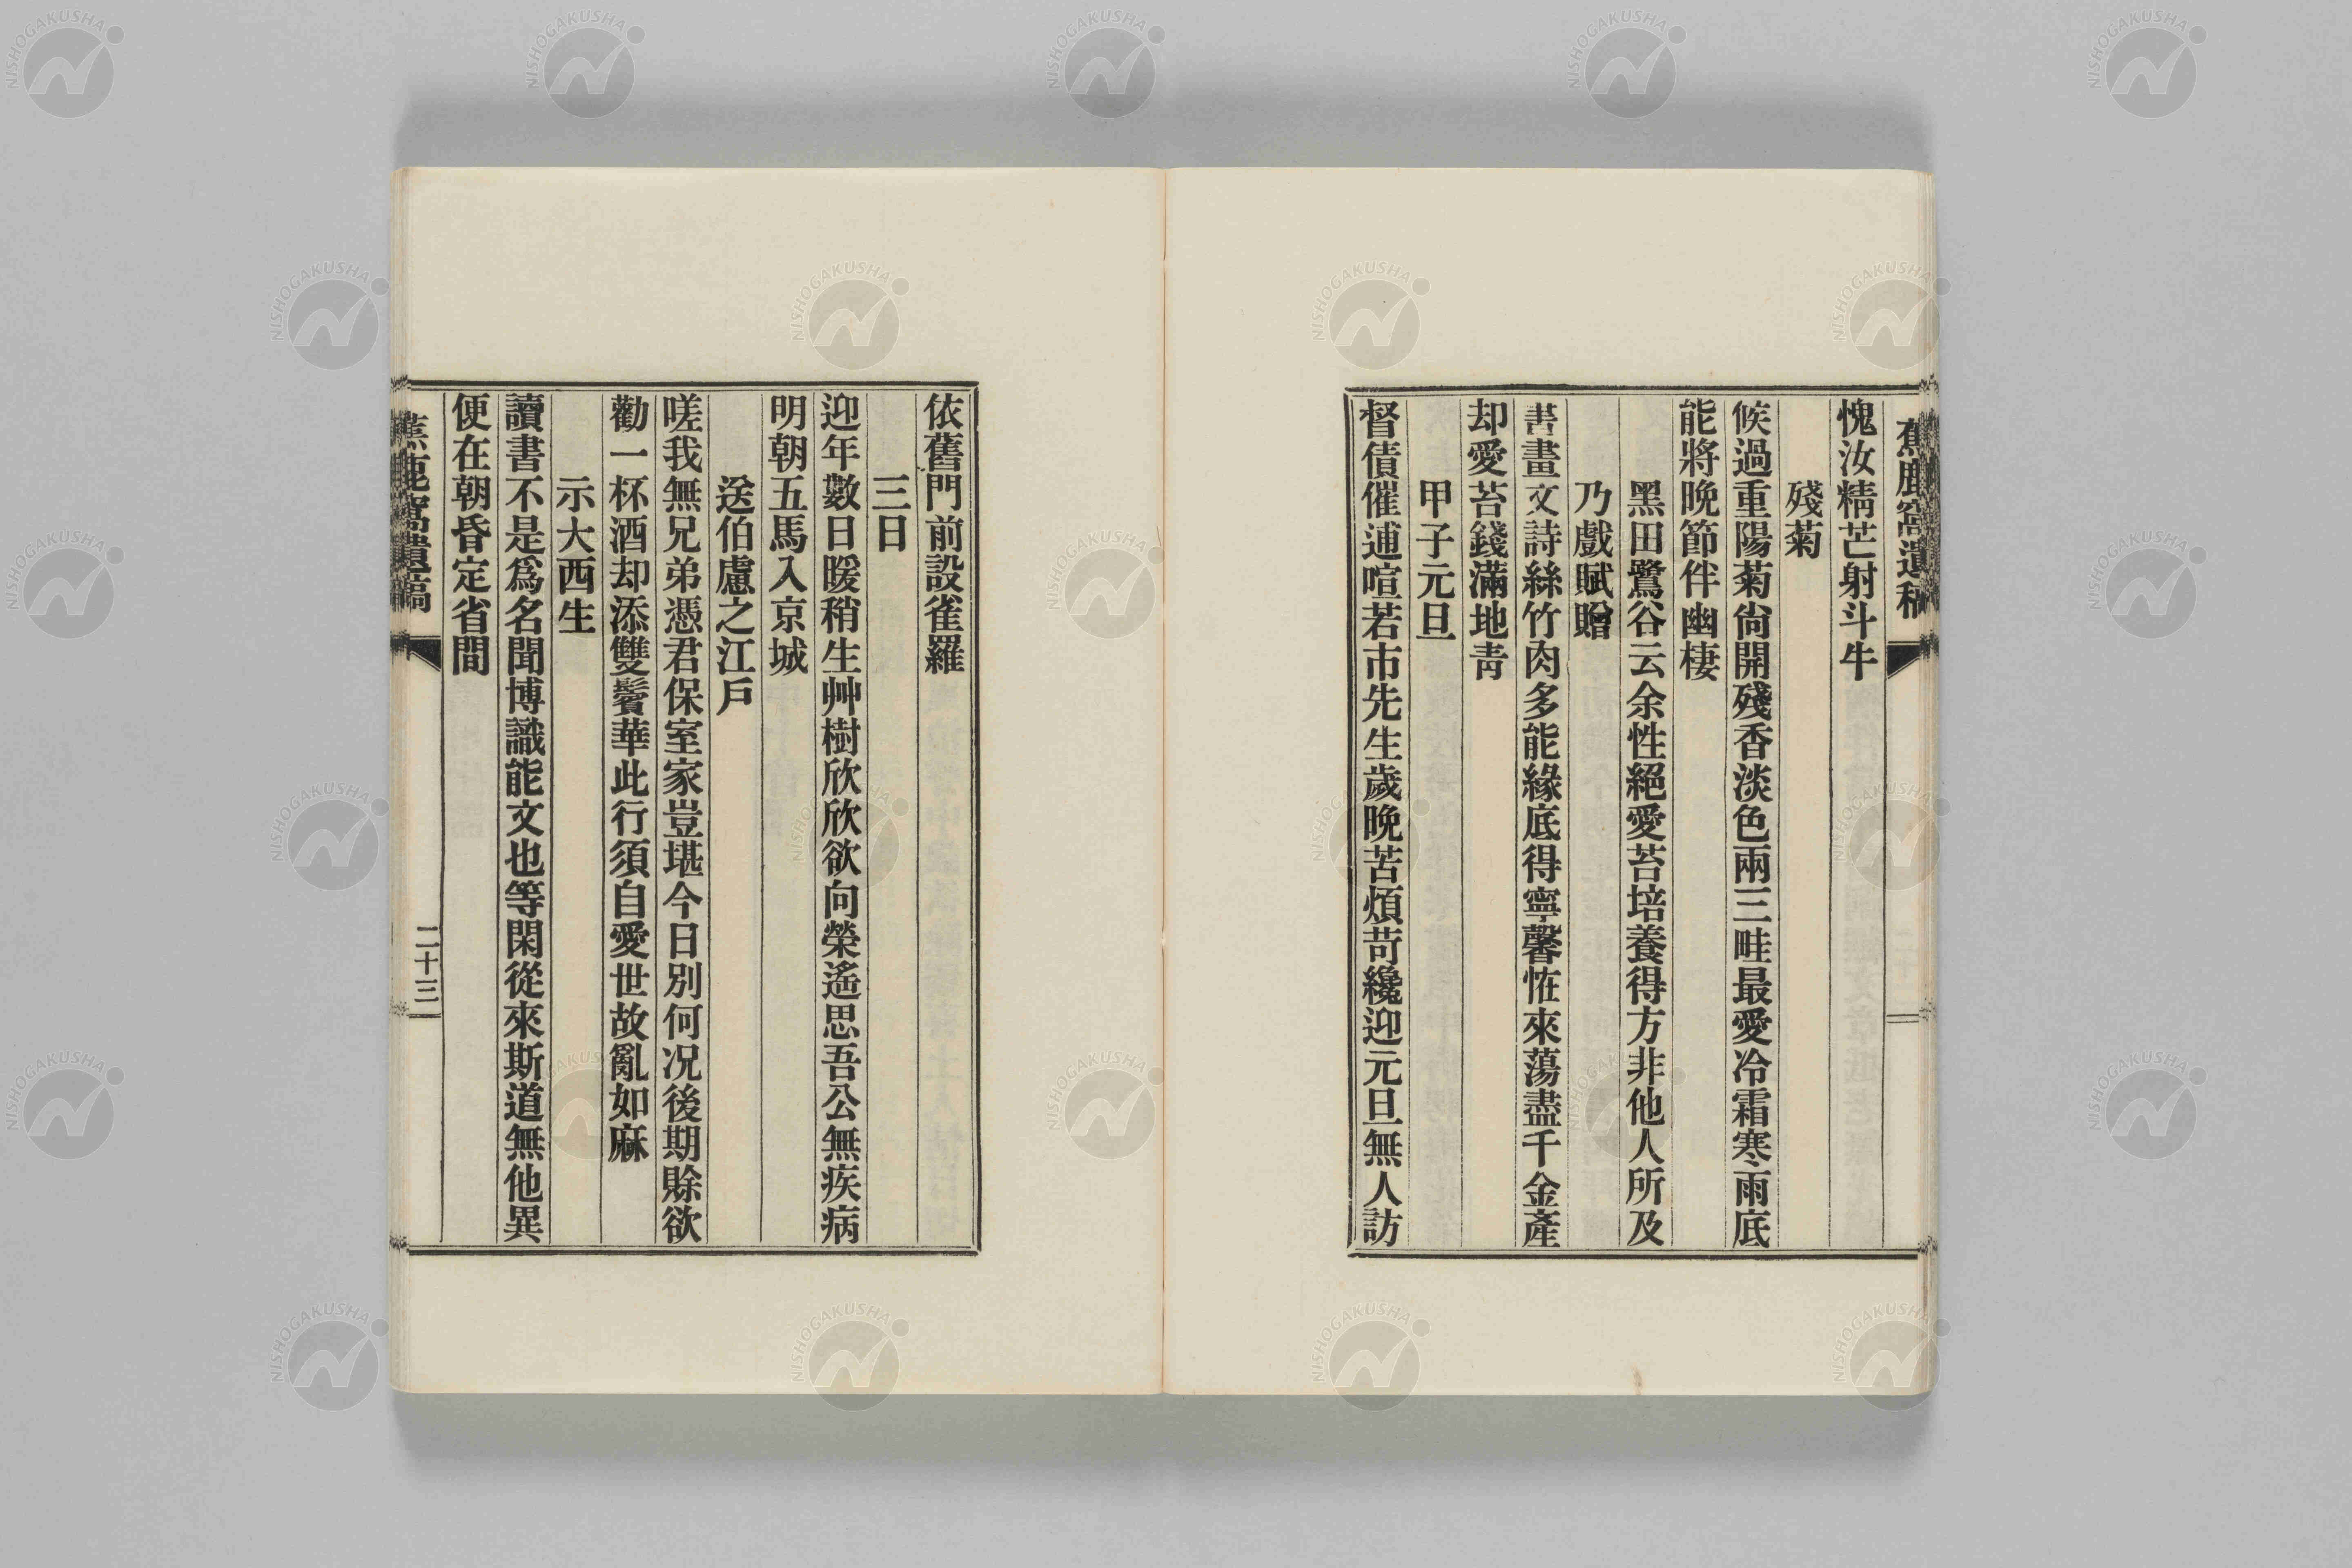 愧汝精芒射斗牛
殘菊
候過重陽菊尙開殘香淡色兩三畦最愛冷霜寒雨底
能將晩節伴幽棲
黑田鷺谷云余性絕愛苔培養得方非他人所及
乃戲賦贈
書畫文詩絲竹肉多能緣底得寧馨恠來蕩盡千金產
却愛苔錢滿地靑
甲子元旦
督債催逋喧若市先生歲晩苦煩苛纔迎元旦無人訪
依舊門前設雀羅
三日
迎年數日暖稍生艸樹欣欣欲向榮遙思吾公無疾病
明朝五馬入京城
送伯慮之江戶
嗟我無兄弟憑君保室家豈堪今日別何况後期賖欲
勸一杯酒却添雙鬢華此行須自愛世故亂如麻
示大西生
讀書不是爲名聞博識能文也等閑從來斯道無他異
便在朝昏定省間
蕉鹿窩遺稿
二十三
NISHOGAKUSHA